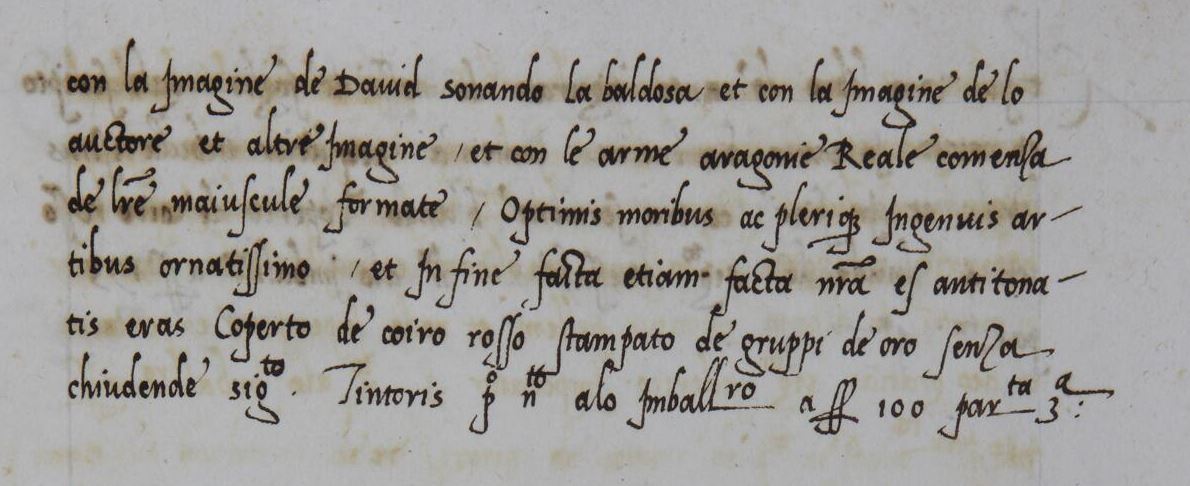 con la Imagine de David sonando la baldosa et con la Imagine de lo
auctore et altre Imagine / et con le arme aragonie Reale comenza
de lr̃e maiuscule formate / Optimis moribus ac pleriqꝫ Ingenuis ar-
tibus ornatissimo / et In fine facta etiam facta nr̃a es antitona-
tis eras Coperto de coiro rosso stampato de gruppi de oro senza
chiudende sig^to. Tintoris p^o n^to alo Imball^ro a 100 par^ta 3^a :